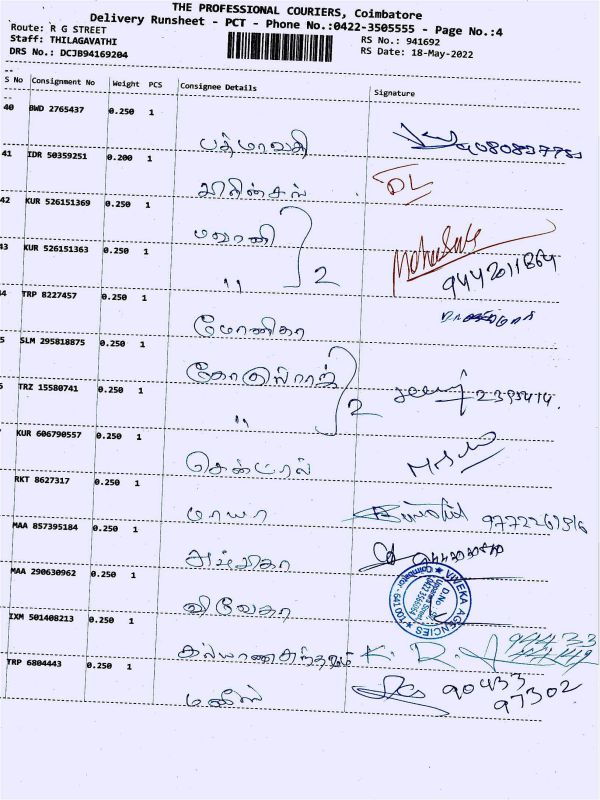 THE PROFESSIONAL COURIERS, Coimbatore
Delivery Runsheet - PCT - Phone No.:0422-3505555 - Page No.:4
Route: R G STREET RS No.: 941692
Staff: THILAGAVATHI RS Date: 18-May-2022
DRS No.: DCJB94169204
S No Consignment No Weight PCS Consignee Details Signature
40 BWD 2765437 0.250 1
பத்மாவதி
41 IDR 50359251 0.200 1
DL
42 KUR 526151369 0.250 1
மவானி
43 KUR 526151363 0.250 1
" 2
9442011864
4 TRP 8227457 0.250 1
மோனிகா
5 SLM 295818875 0.250 1
கோகுல்ராஜ்
TRZ 15580741 0.250 1
" 2
KUR 606790557 0.250 1
சென்ட்ரல்
RKT 8627317 0.250 1
மாயா
MAA 857395184 0.250 1
அம்பிகா
MAA 290630962 0.250 1
VIVEKA AGENCIES
விவேகா
IXM 501408213 0.250 1
கல்யாணசுந்தரம் K. R.
TRP 6804443 0.250 1
மனிஷ் 90433
97302